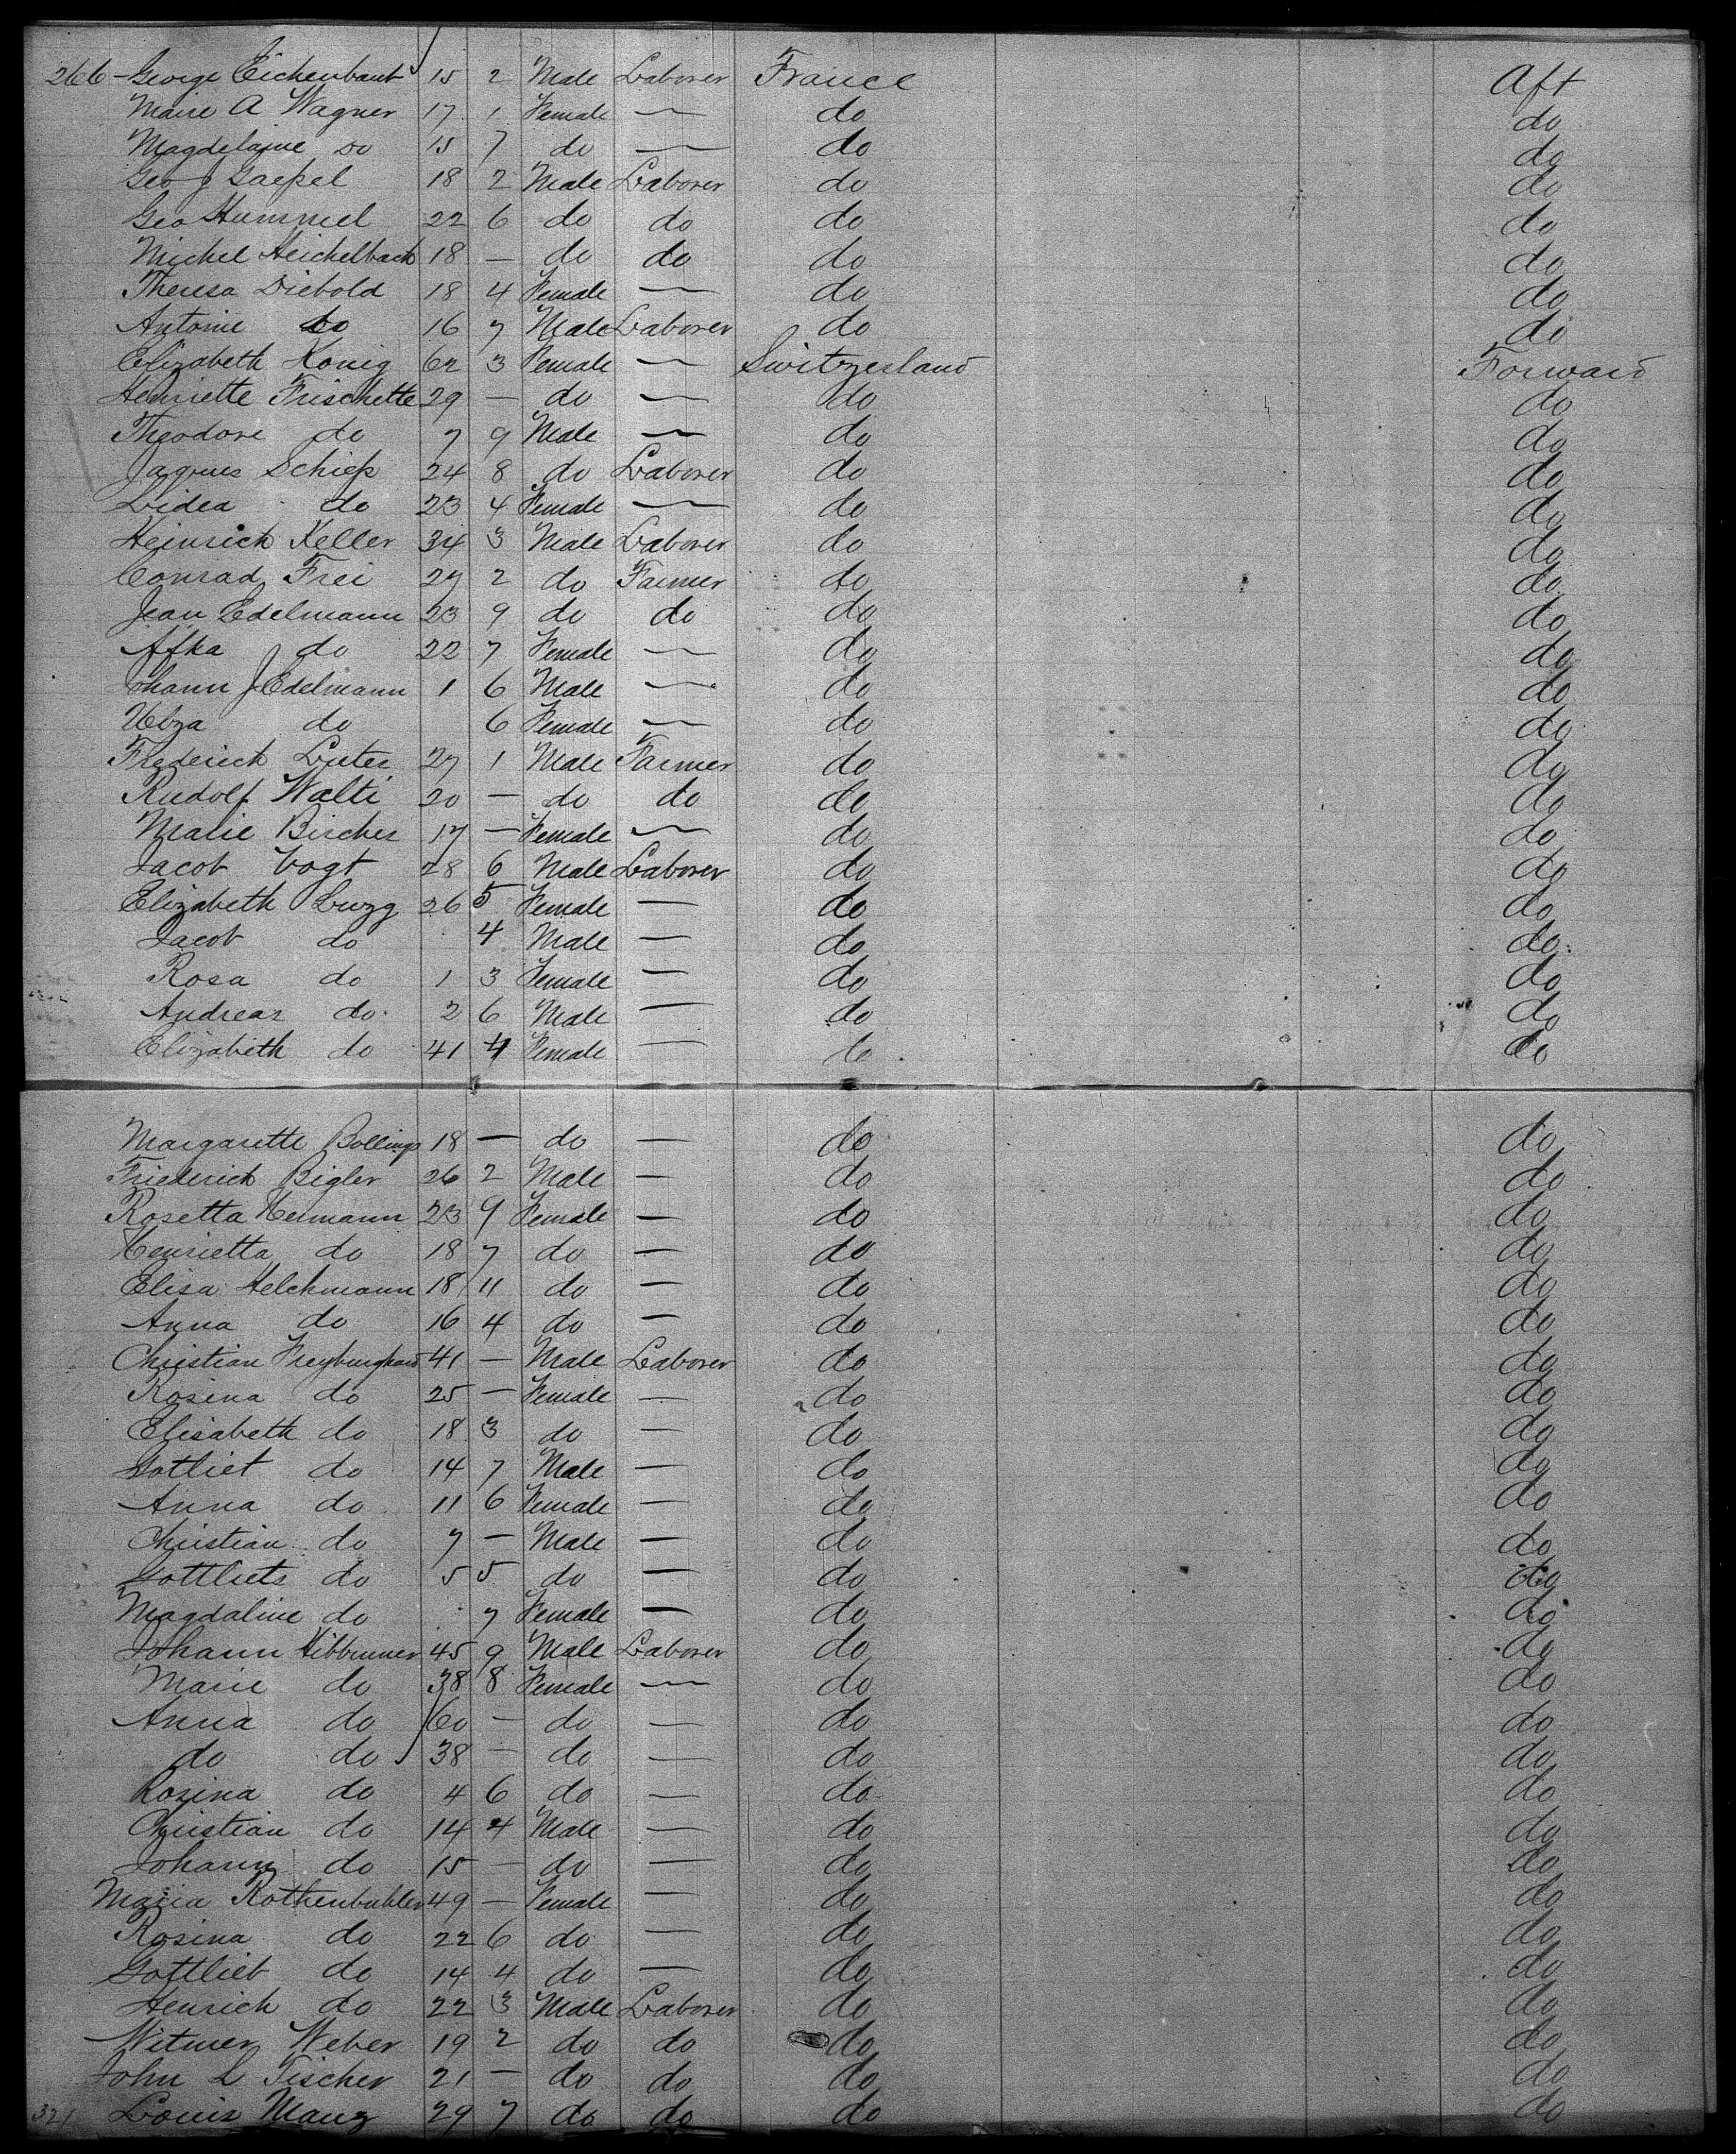 266 - George Eichenbaut 15 2 Male Laborer France Aft
Marie A Wagner 17 1 Female — do do
Magdelaine Do 15 7 do — do do
Geo J Gaepel 18 2 Male Laborer do do
Geo Hummel 22 6 do do do do
Michel Heichelbach 18 — do do do do
Theresa Diebold 18 4 Female — do do
Antoine Do 16 7 Male Laborer do do
Elizabeth Konig 62 3 Female — Switzerland Forward
Henriette Frischette 29 — do — do do
Theodore do 7 9 Male — do do
Jaques Schiep 24 8 do Laborer do do
Lidea do 23 4 Female — do do
Heinrich Keller 34 3 Male Laborer do do
Conrad Frei 27 2 do Farmer do do
Jean Edelmann 23 9 do do do do
Afka do 22 7 Female — do do
Johann J Edelmann 1 6 Male — do do
do 6 Female — do do
Frederick Luter 27 1 Male Farmer do do
Rudolf Walti 20 — do do do do
Marie Bircher 17 — Female — do do
Jacob Vogt 28 6 Male Laborer do do
Elizabeth Luzg 26 5 Female — do do
Jacob do 4 Male — do do
Rosa do 1 3 Female — do do
Andreas do 2 6 Male — do do
Elizabeth do 41 4 Female — do do
Margarette Bollings 18 — do — do do
Friederick Bigler 26 2 Male — do do
Rosetta Heimann 23 9 Female — do do
Henrietta do 18 7 do — do do
Elisa Helchmann 18 11 do — do do
Anna do 16 4 do — do do
Christian Freyburghaus 41 — Male Laborer do do
Rosina do 25 — Female — do do
Elisabeth do 18 3 do — do do
Gotliet do 14 7 Male — do do
Anna do 11 6 Female — do do
Christian do 7 — Male — do do
Gottliets do 5 5 do — do do
Magdaline do 7 Female — do do
Johann Hibbrunner 45 9 Male Laborer do do
Marie do 38 8 Female — do do
Anna do 60 — do — do do
do do 38 — do — do do
Rosina do 4 6 do — do do
Christian do 14 4 Male — do do
Johann do 15 — do — do do
Maria Rothenbuhler 49 — Female — do do
Rosina do 22 6 do — do do
Gottlieb do 14 4 do — do do
Henrich do 22 3 Male Laborer do do
Witmer Weber 19 2 do do do do
John L Fischer 21 — do do do do
321 Louis Manz 29 7 do do do do